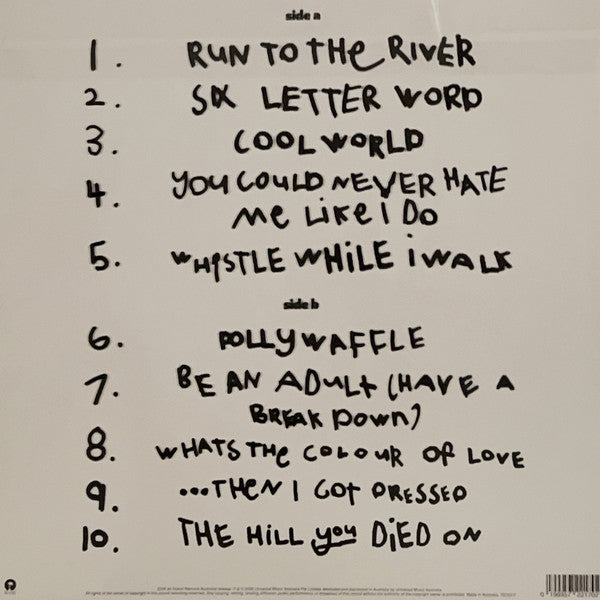 side a
1. RUN TO THE RIVER
2. SIX LETTER WORD
3. COOL WORLD
4. YOU COULD NEVER HATE
ME LIKE I DO
5. WHISTLE WHILE I WALK
side b
6. POLLYWAFFLE
7. BE AN ADULT (HAVE A
BREAK DOWN)
8. WHATS THE COLOUR OF LOVE
9. ...THEN I GOT DRESSED
10. THE HILL you DIED ON